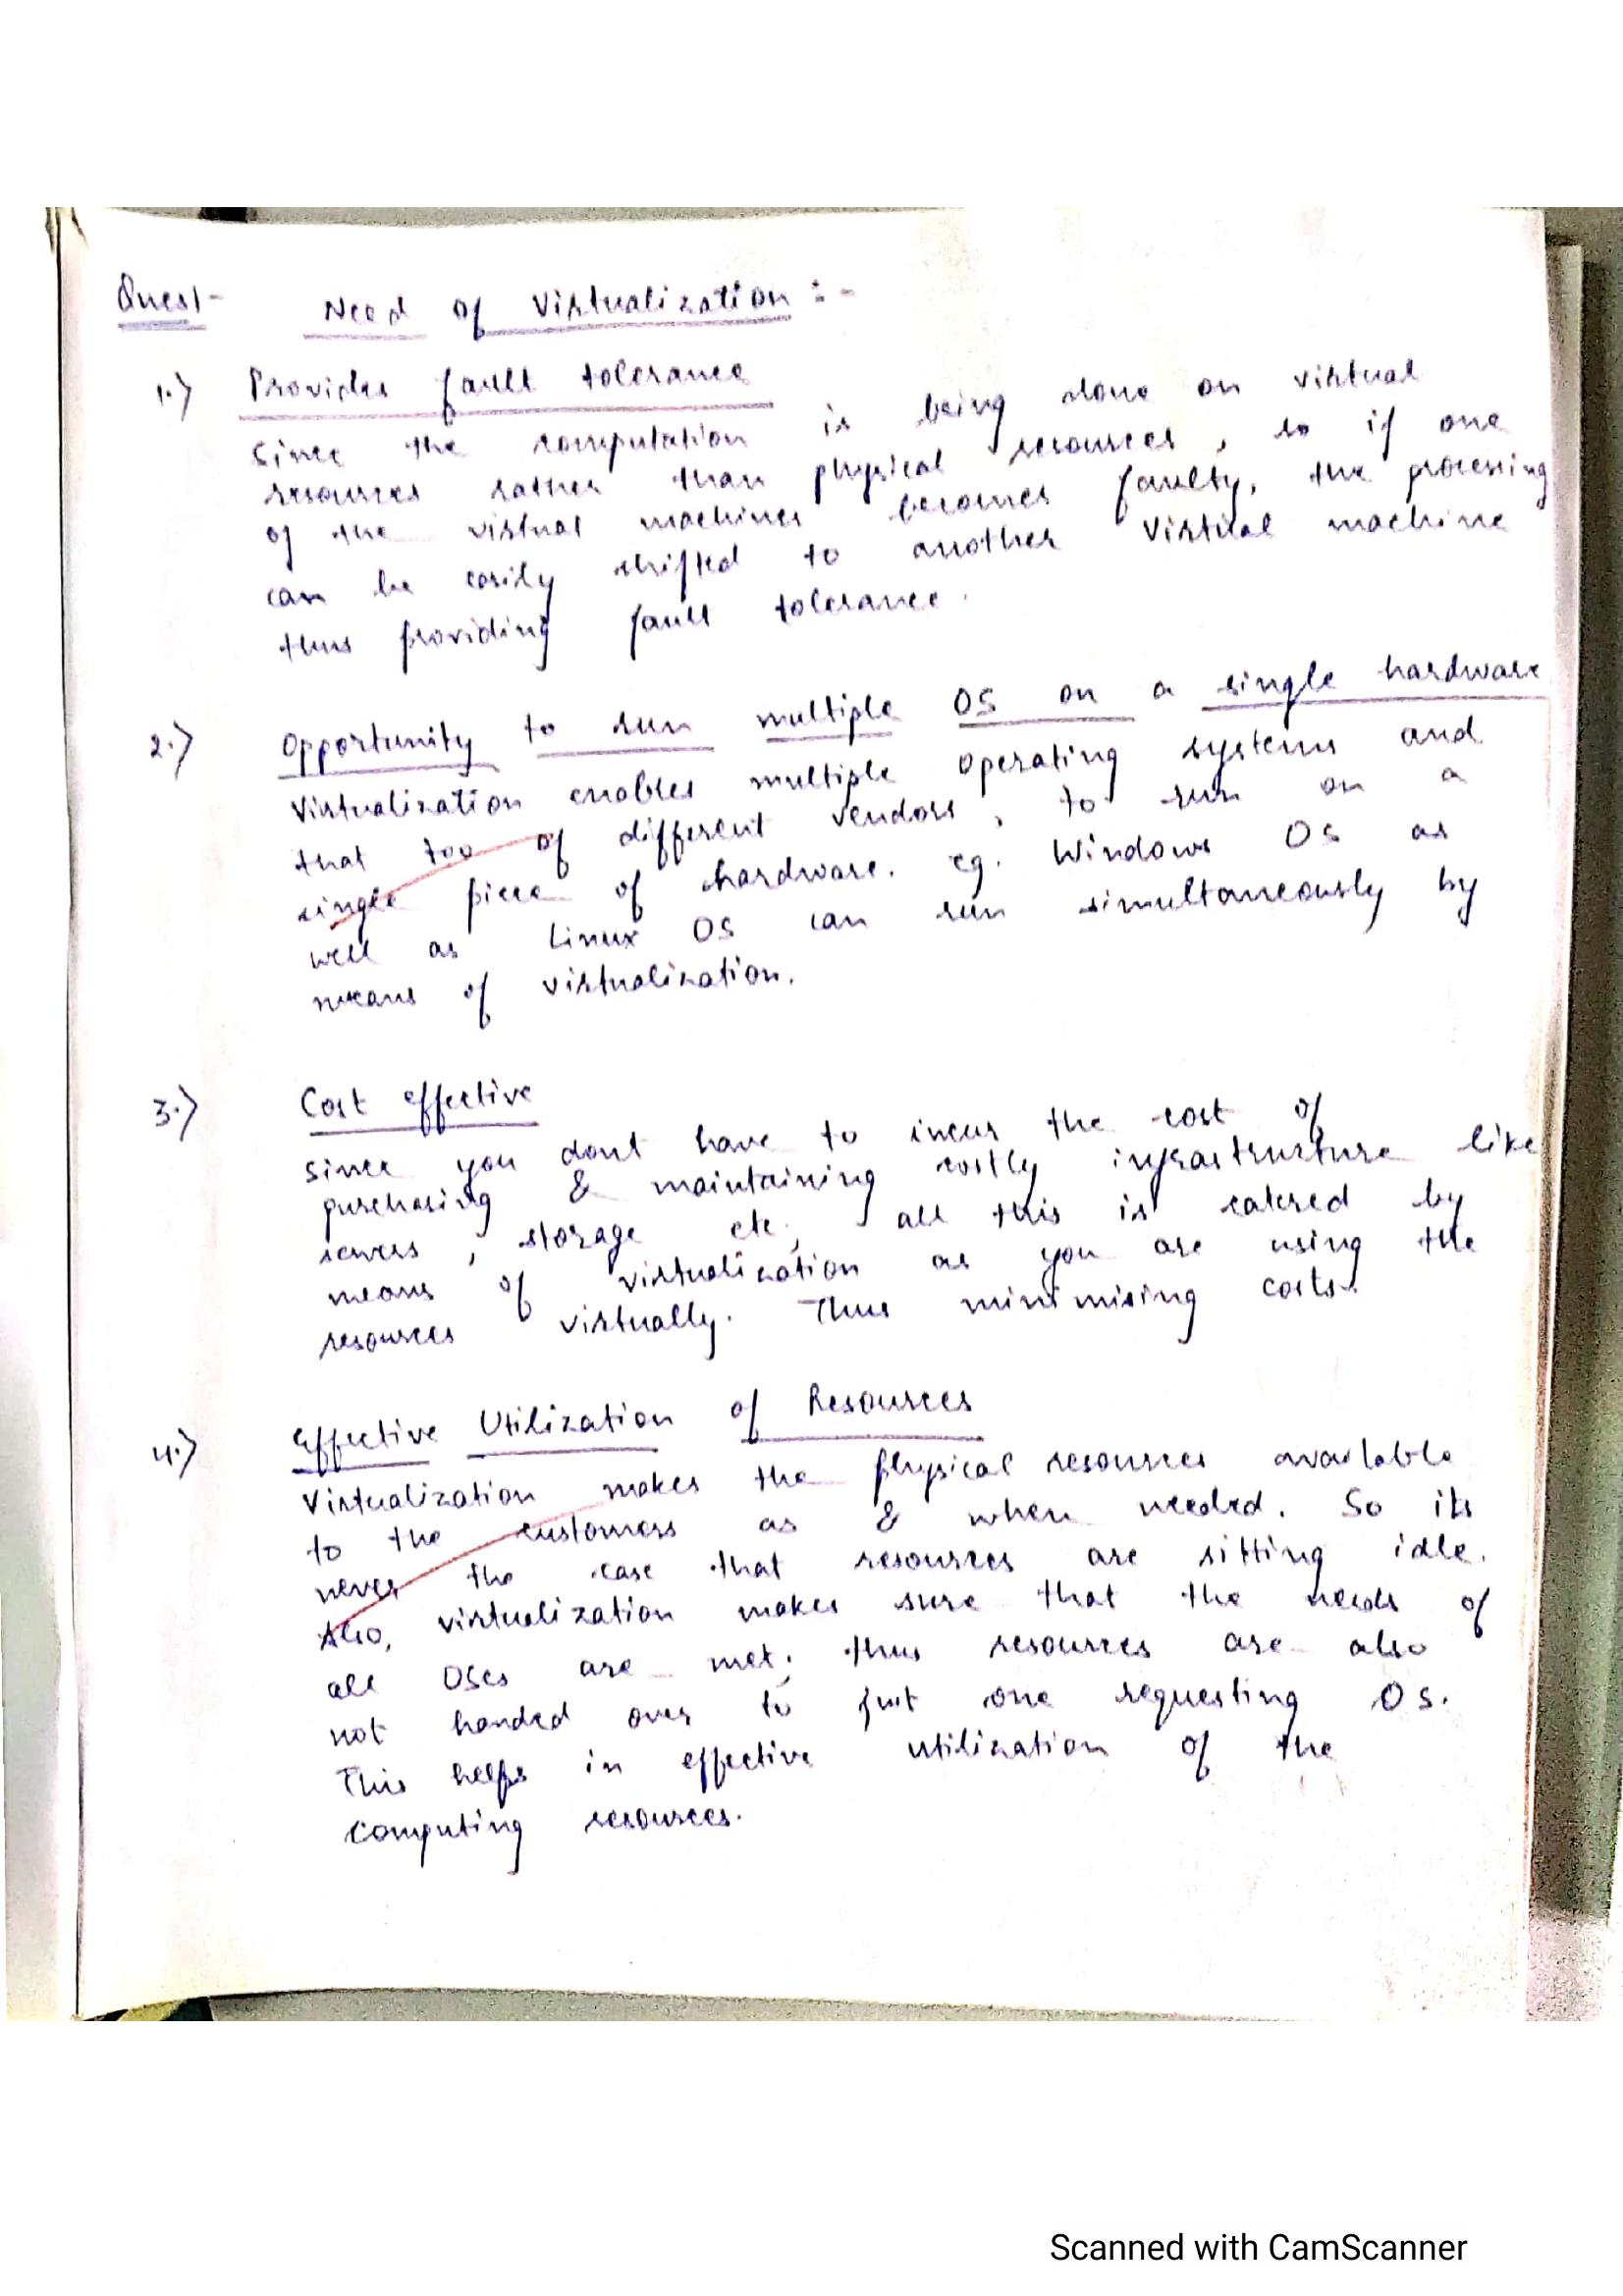 Ques1- Need of Virtualization :-
1.) Provides fault tolerance
Since the computation is being done on virtual
resources rather than physical resources, so if one
of the virtual machines becomes faulty, the processing
can be easily shifted to another virtual machine
thus providing fault tolerance.
2.) Opportunity to run multiple OS on a single hardware
Virtualization enables multiple operating systems and
that too of different vendors, to run on a
single piece of hardware. eg. Windows OS as
well as Linux OS can run simultaneously by
means of virtualization.
3.) Cost effective
Since you dont have to incur the cost of
purchasing & maintaining costly infrastructure like
servers, storage etc; all this is catered by
means of virtualization as you are using the
resources virtually. Thus minimising costs.
4.) Effective Utilization of Resources
Virtualization makes the physical resources available
to the customers as & when needed. So its
never the case that resources are sitting idle.
Also, virtualization makes sure that the needs of
all OSes are met; thus resources are also
not handed over to just one requesting OS.
This helps in effective utilization of the
computing resources.
Scanned with CamScanner